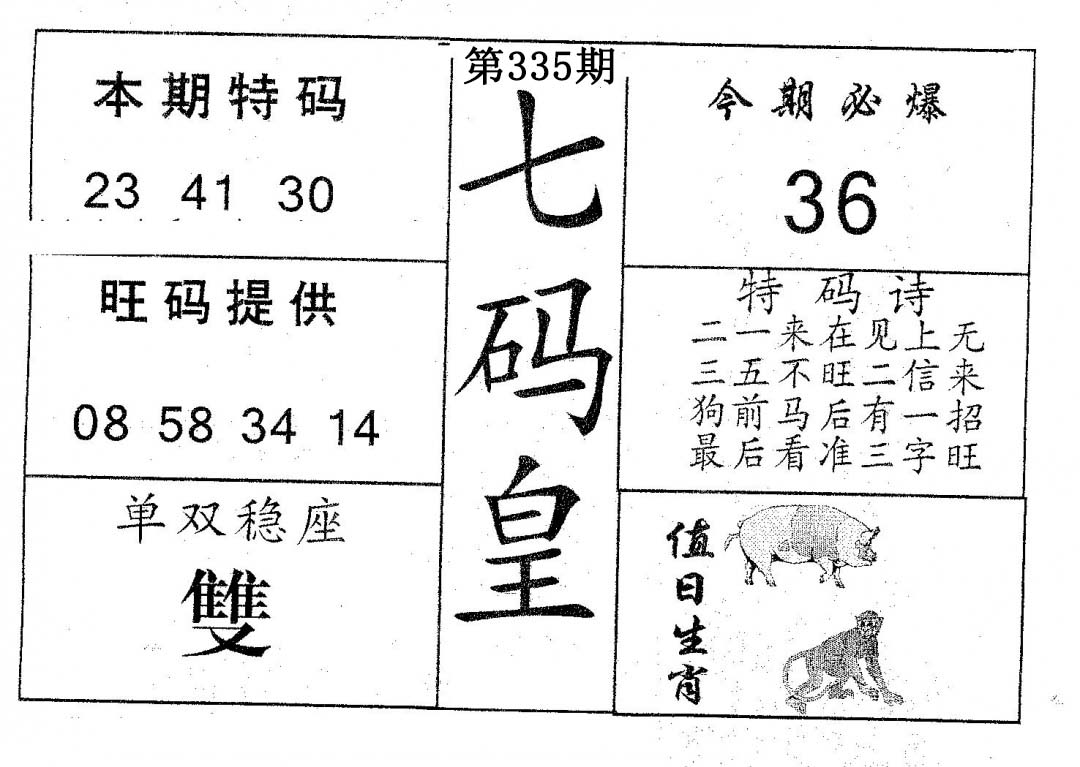 第335期
七码皇
本期特码
23 41 30
旺码提供
08 58 34 14
单双稳座
雙
今期必爆
36
特码诗
二一来在见上无
三五不旺二信来
狗前马后有一招
最后看准三字旺
值日生肖